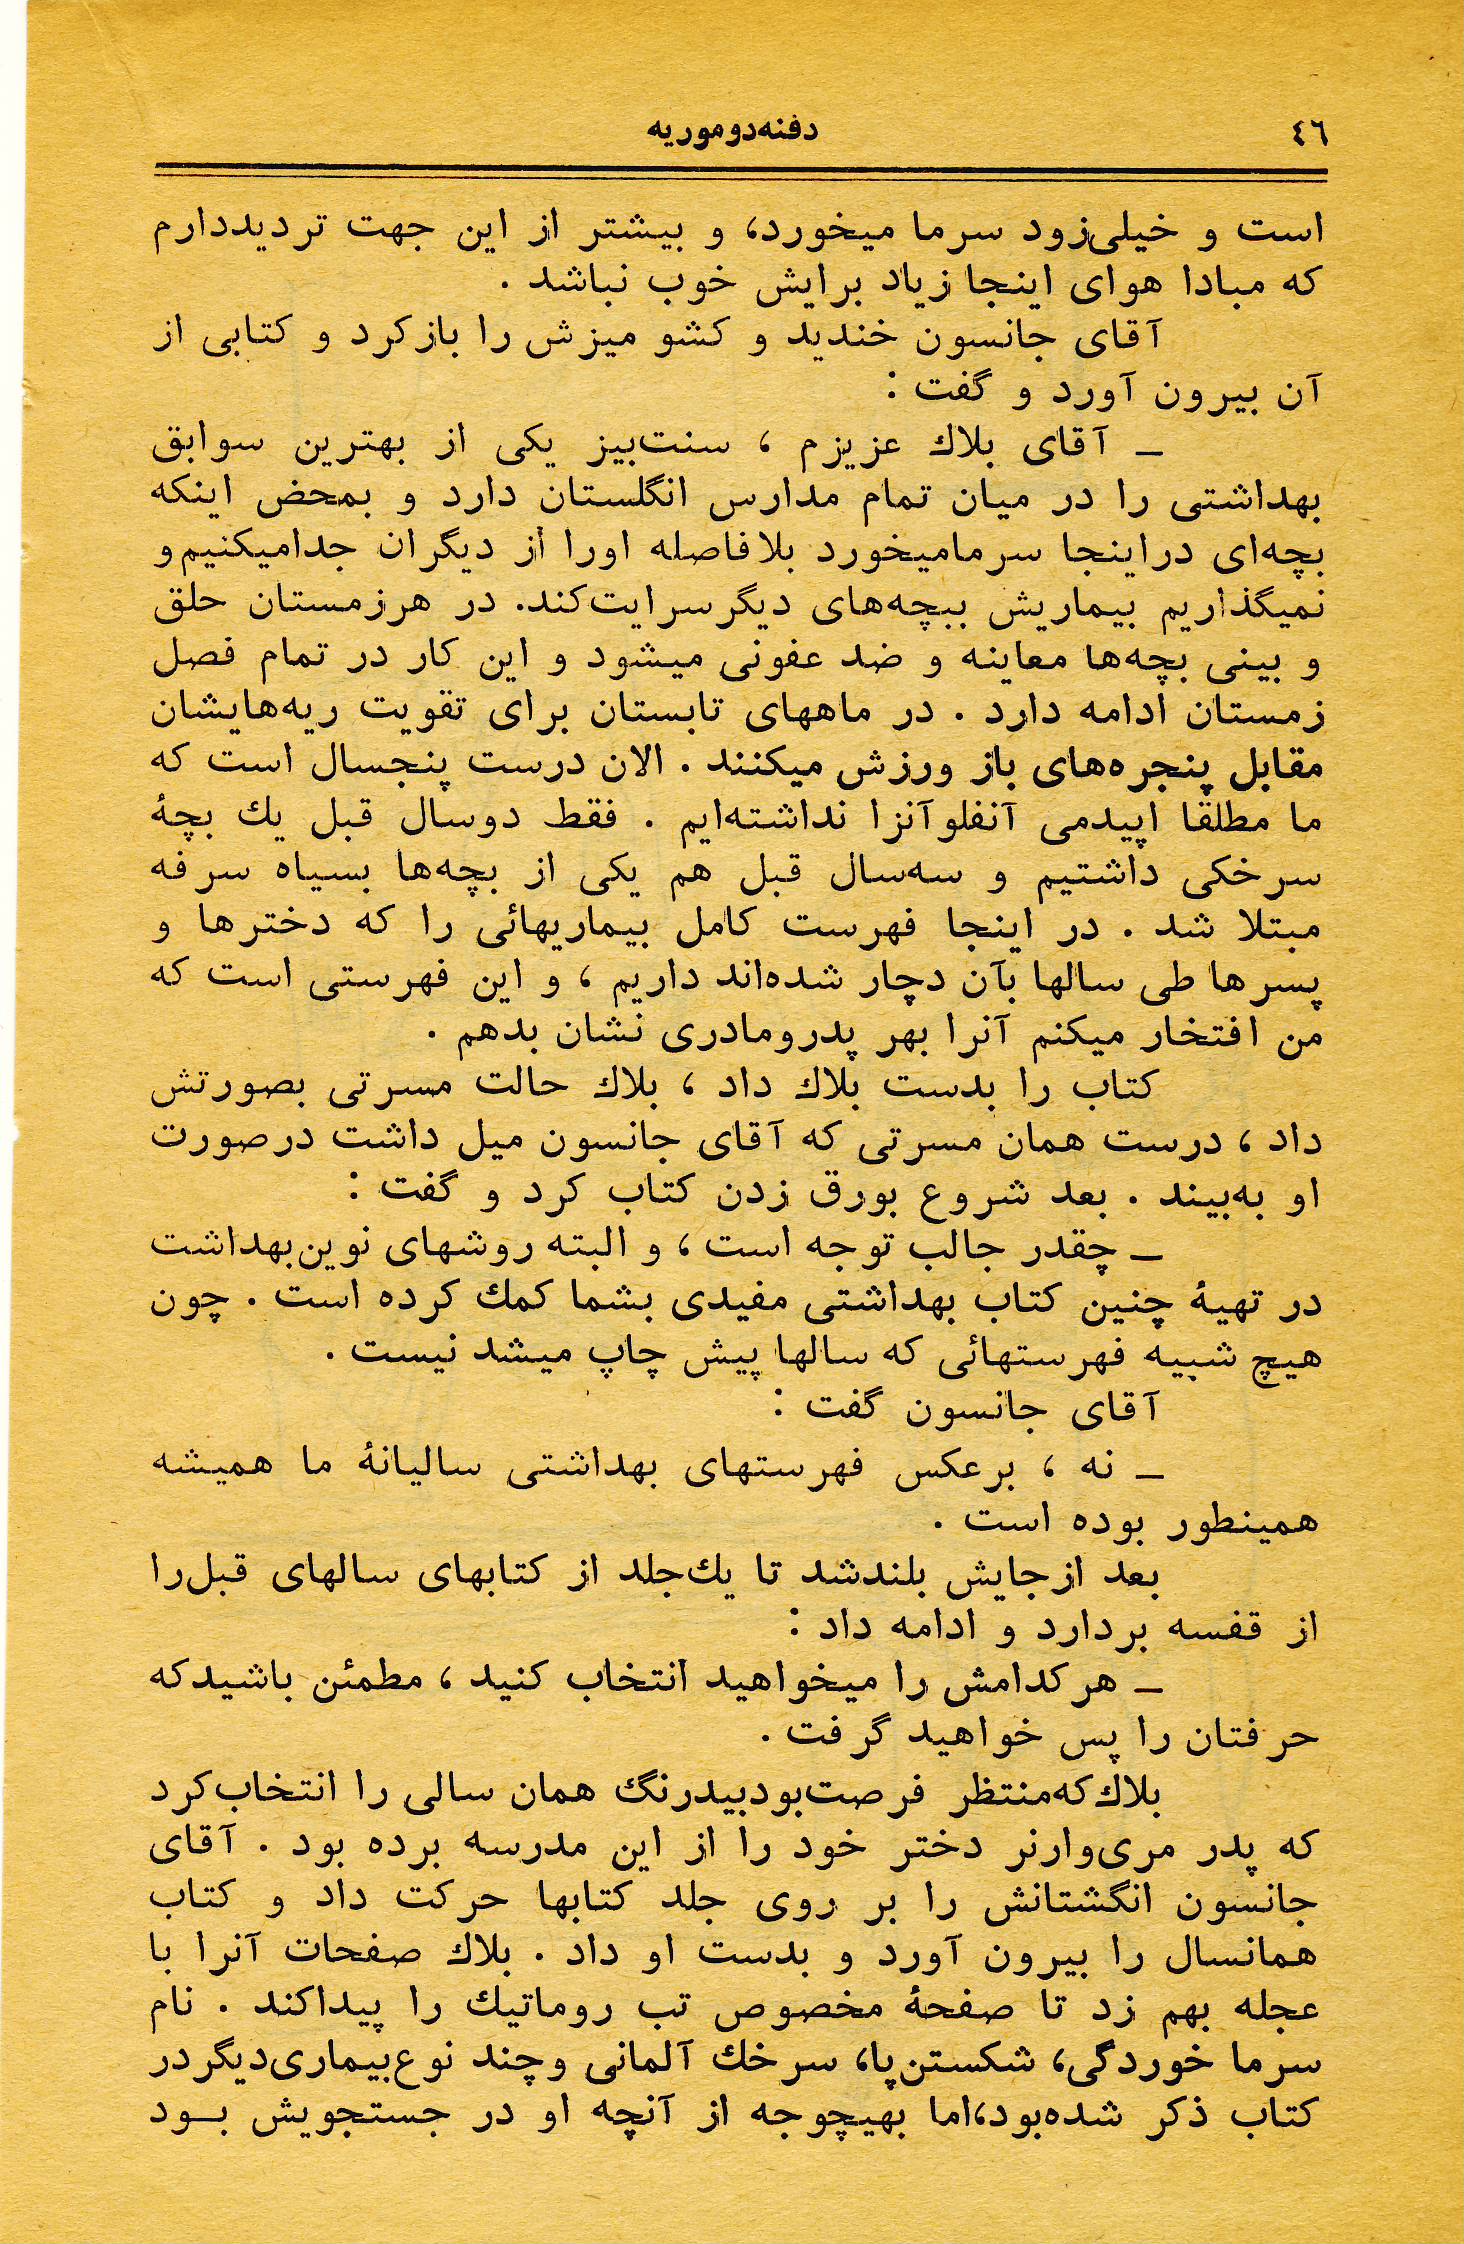 ٤٦
دفنه‌دوموریه
است و خیلی‌زود سرما میخورد، و بیشتر از این جهت تردیددارم
که مبادا هوای اینجا زیاد برایش خوب نباشد .
آقای جانسون خندید و کشو میزش را بازکرد و کتابی از
آن بیرون آورد و گفت :
ـ آقای بلاك عزیزم ، سنت‌بیز یکی از بهترین سوابق
بهداشتی را در میان تمام مدارس انگلستان دارد و بمحض اینکه
بچه‌ای دراینجا سرمامیخورد بلافاصله اورا از دیگران جدامیکنیم‌و
نمیگذاریم بیماریش ببچه‌های دیگرسرایت‌کند. در هرزمستان حلق
و بینی بچه‌ها معاینه و ضد عفونی میشود و این کار در تمام فصل
زمستان ادامه دارد . در ماههای تابستان برای تقویت ریه‌هایشان
مقابل پنجره‌های باز ورزش میکنند . الان درست پنجسال است که
ما مطلقا اپیدمی آنفلوآنزا نداشته‌ایم . فقط دوسال قبل یك بچهٔ
سرخکی داشتیم و سه‌سال قبل هم یکی از بچه‌ها بسیاه سرفه
مبتلا شد . در اینجا فهرست کامل بیماریهائی را که دخترها و
پسرها طی سالها بآن دچار شده‌اند داریم ، و این فهرستی است که
من افتخار میکنم آنرا بهر پدرومادری نشان بدهم .
کتاب را بدست بلاك داد ، بلاك حالت مسرتی بصورتش
داد ، درست همان مسرتی که آقای جانسون میل داشت درصورت
او به‌بیند . بعد شروع بورق زدن کتاب کرد و گفت :
ـ چقدر جالب توجه است ، و البته روشهای نوین‌بهداشت
در تهیهٔ چنین کتاب بهداشتی مفیدی بشما کمك کرده است . چون
هیچ شبیه فهرستهائی که سالها پیش چاپ میشد نیست .
آقای جانسون گفت :
ـ نه ، برعکس فهرستهای بهداشتی سالیانهٔ ما همیشه
همینطور بوده است .
بعد ازجایش بلندشد تا یك‌جلد از کتابهای سالهای قبل‌را
از قفسه بردارد و ادامه داد :
ـ هرکدامش را میخواهید انتخاب کنید ، مطمئن باشیدکه
حرفتان را پس خواهید گرفت .
بلاك‌که‌منتظر فرصت‌بودبیدرنگ همان سالی را انتخاب‌کرد
که پدر مری‌وارنر دختر خود را از این مدرسه برده بود . آقای
جانسون انگشتانش را بر روی جلد کتابها حرکت داد و کتاب
همانسال را بیرون آورد و بدست او داد . بلاك صفحات آنرا با
عجله بهم زد تا صفحهٔ مخصوص تب روماتیك را پیداکند . نام
سرما خوردگی، شکستن‌پا، سرخك آلمانی وچند نوع‌بیماری‌دیگردر
کتاب ذکر شده‌بود،اما بهیچوجه از آنچه او در جستجویش بـود